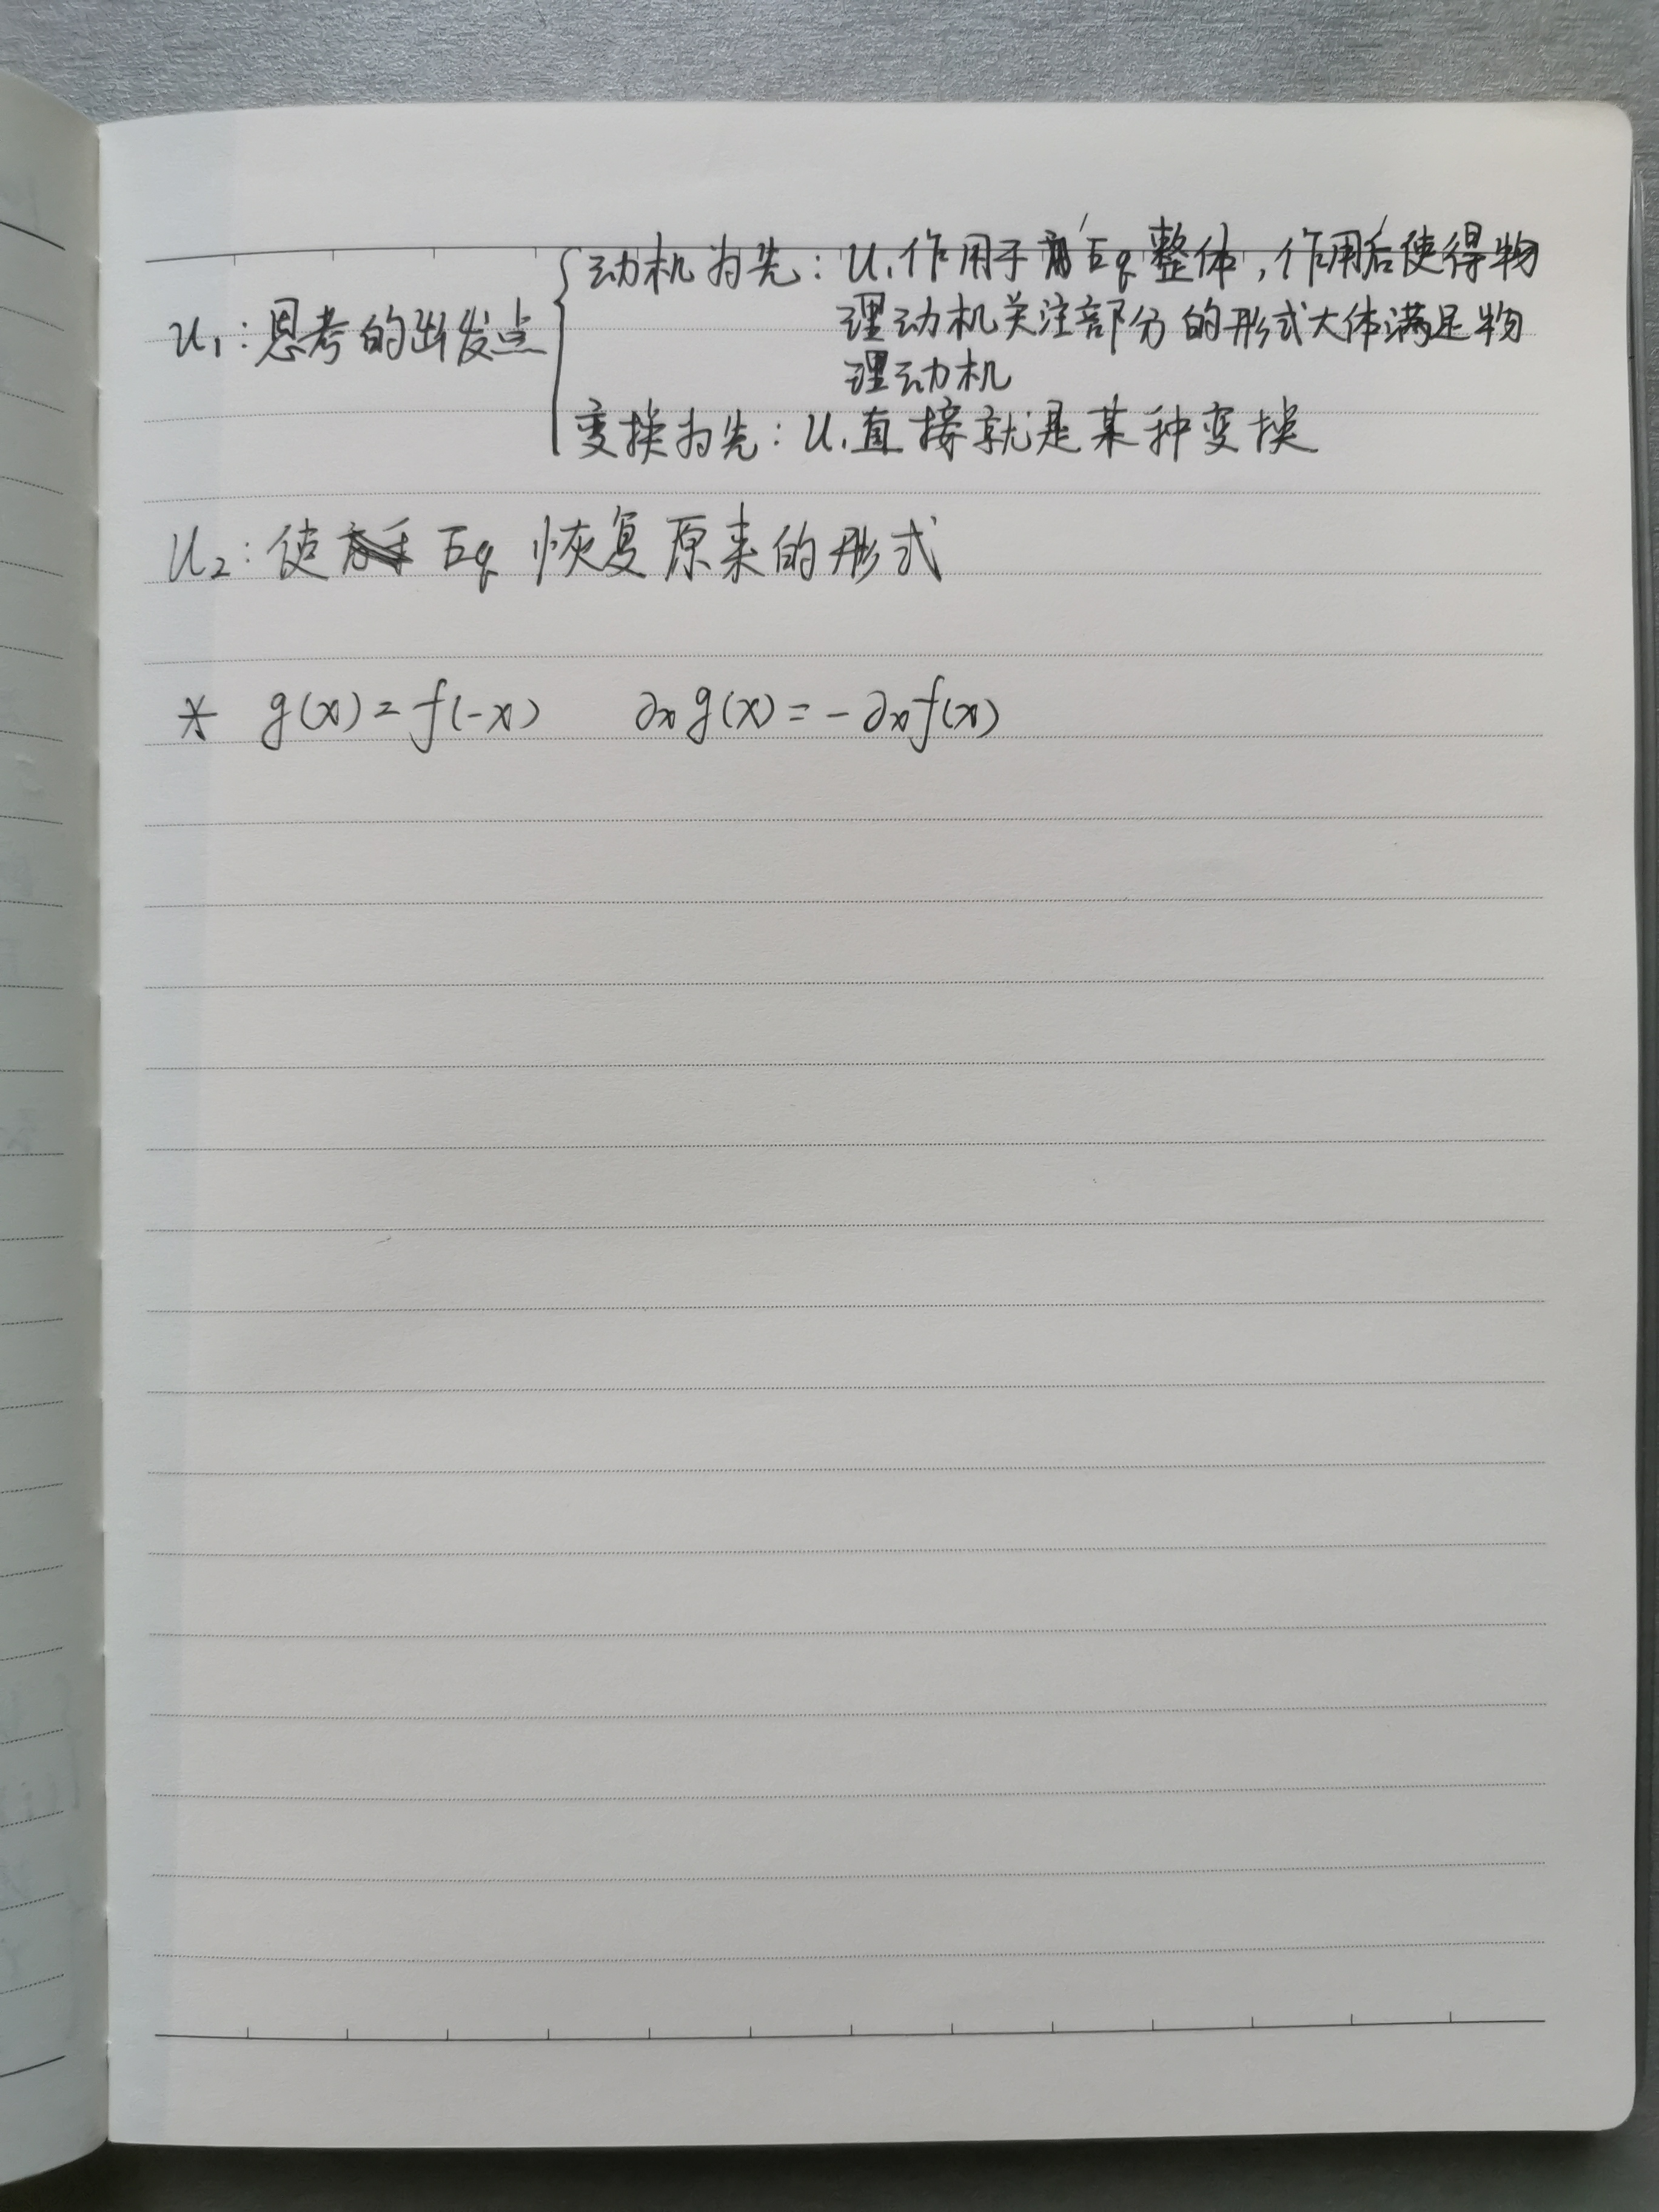 U₁: 思考的出发点
动机为先: U₁作用于Eq整体, 作用后使得物
理动机关注部分的形式大体满足物
理动机
变换为先: U₁直接就是某种变换
U₂: 使 Eq 恢复原来的形式
* g(x) = f(-x) ∂ₓg(x) = -∂ₓf(x)